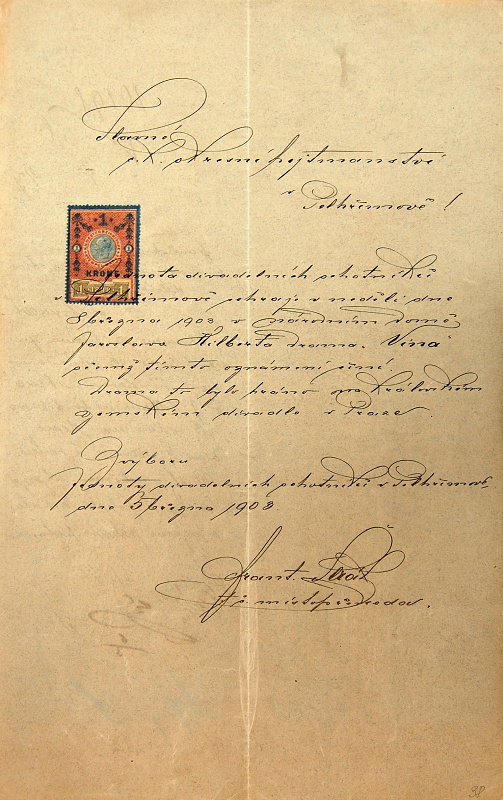 Slavné
c. k. okresní hejtmanství
v Pelhřimově!
1
KRONE
Jednota divadelních ochotníků
v Pelhřimově sehraje v neděli dne
8 března 1908 v Národním domě
Jaroslava Hilberta drama. Vina
o čemž tímto oznámení činí.
Drama to bylo hráno na královském
zemském divadle v Praze.
Z výboru
Jednoty divadelních ochotníků v Pelhřimově,
dne 5 března 1908.
Frant.
t. č. místopředseda.
38